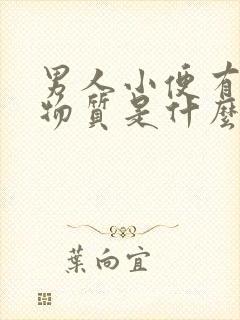 男人小便有
物质是什麼
葉向宜